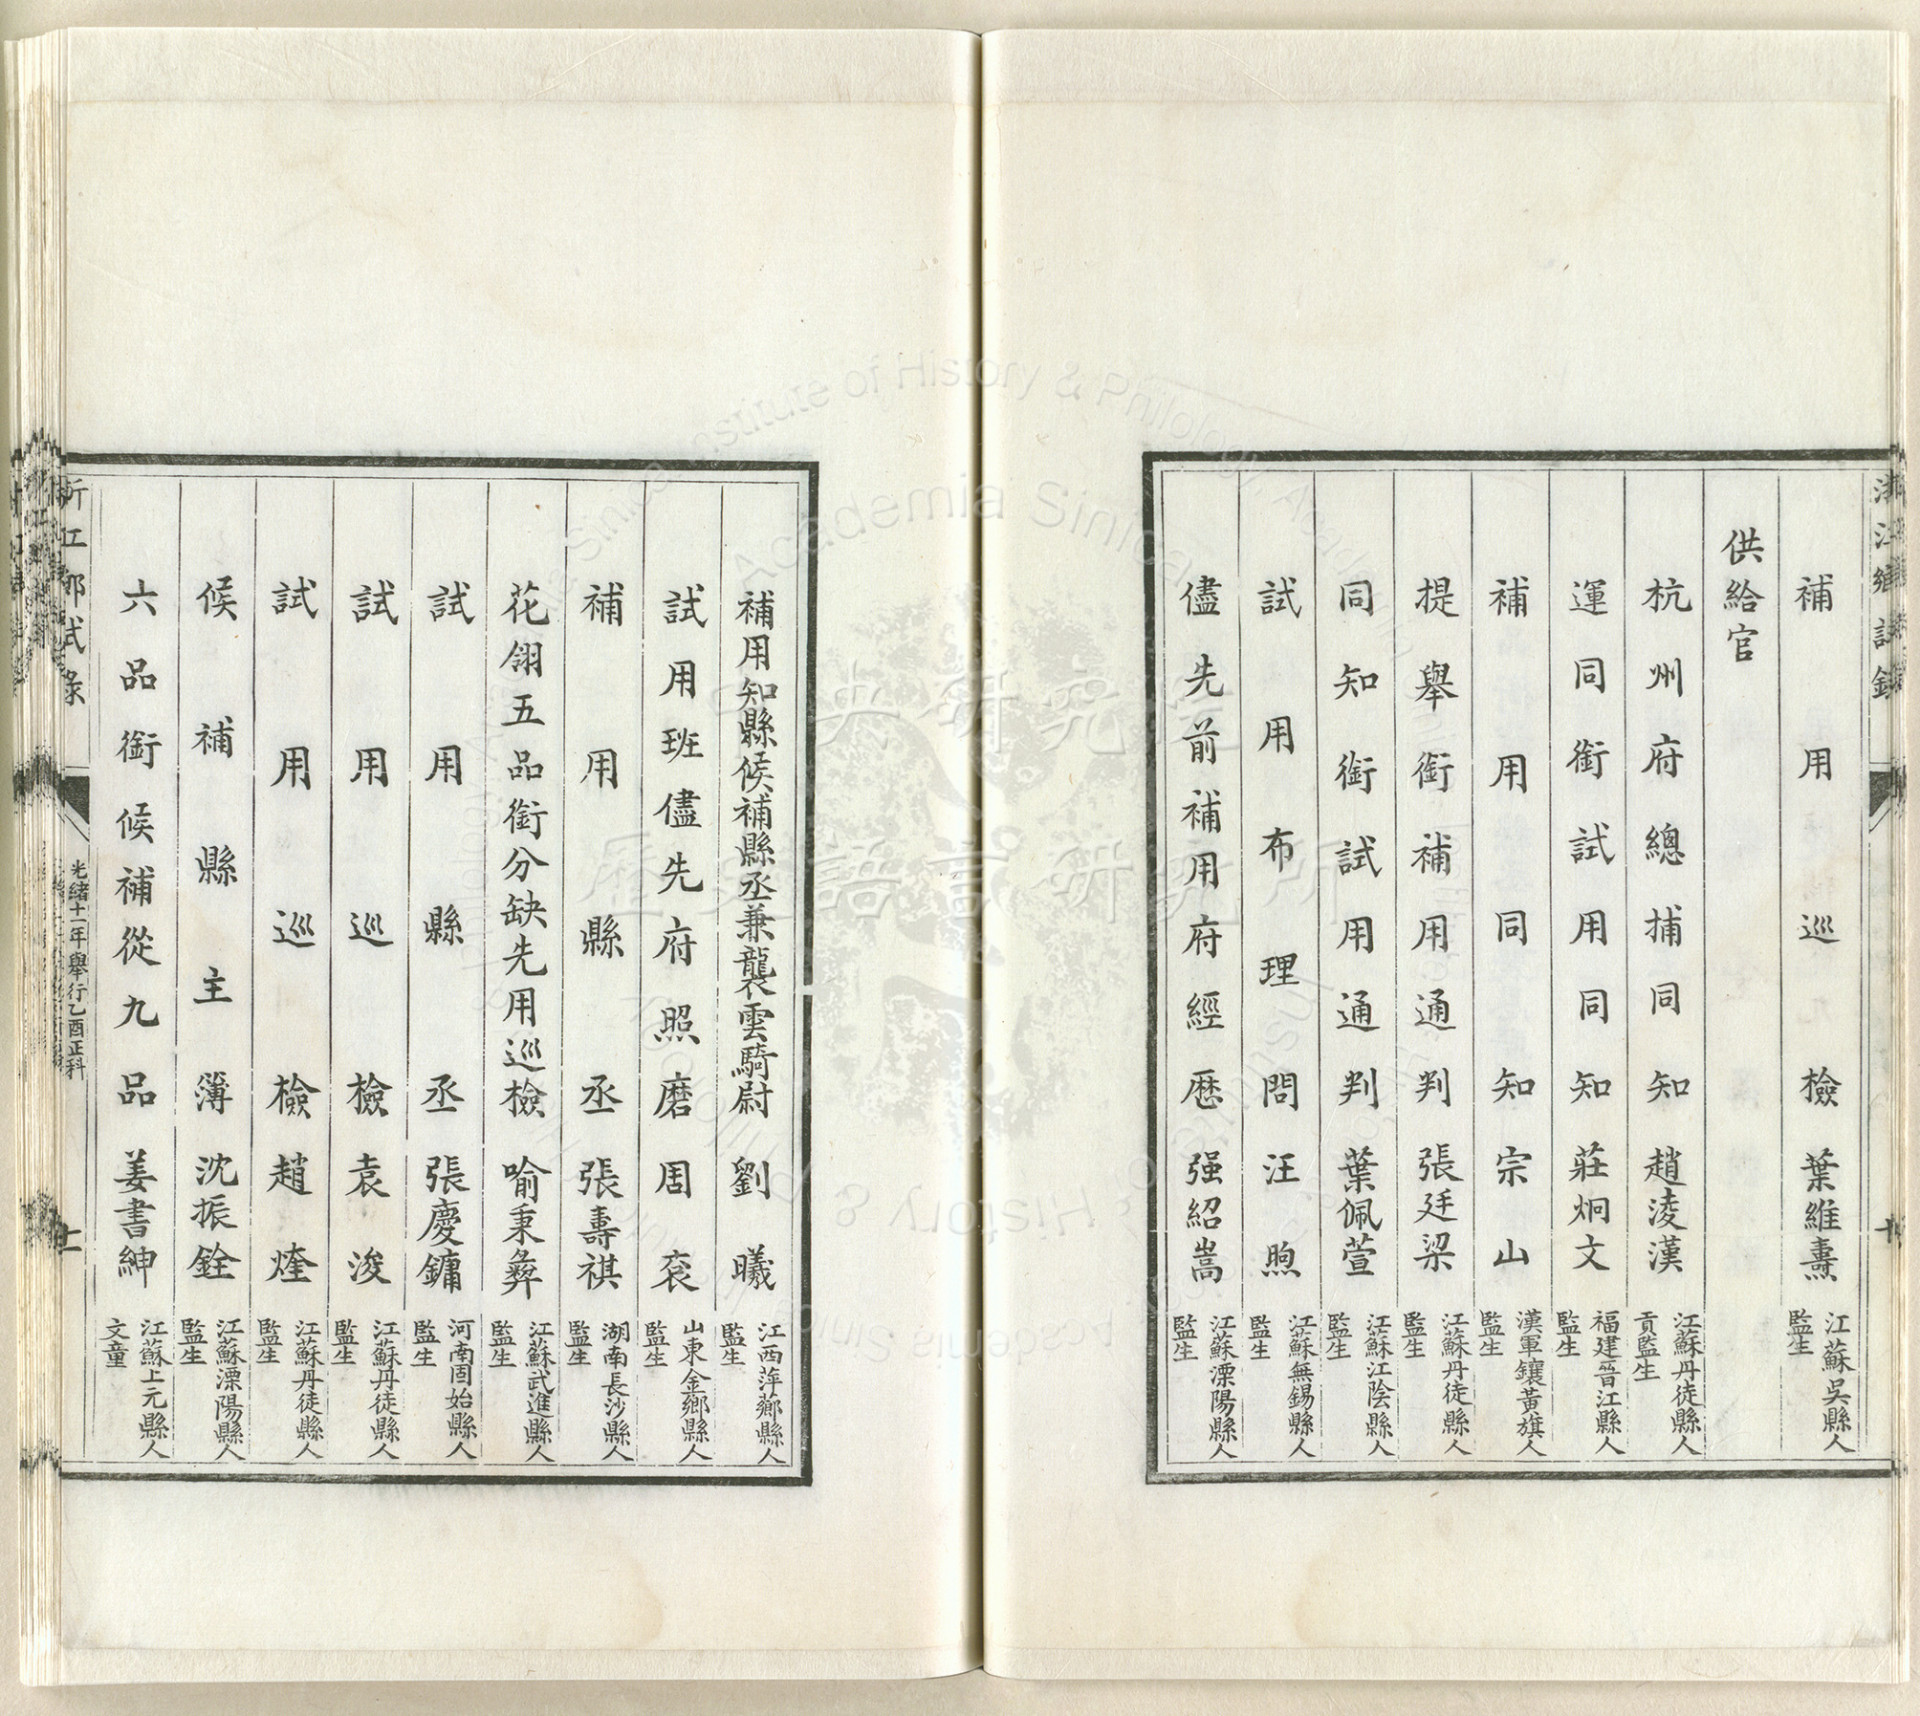 浙江鄉試錄
十
補用巡檢葉維燾 江蘇吳縣人 監生
供給官
杭州府總捕同知趙淩漢 江蘇丹徒縣人 貢監生
運同銜試用同知莊炯文 福建晉江縣人 監生
補用同知宗山 漢軍鑲黃旗人 監生
提舉銜補用通判張廷梁 江蘇丹徒縣人 監生
同知銜試用通判葉佩萱 江蘇江陰縣人 監生
試用布理問汪煦 江蘇無錫縣人 監生
儘先前補用府經歷强紹嵩 江蘇溧陽縣人 監生
補用知縣候補縣丞兼襲雲騎尉劉曦 江西萍鄉縣人 監生
試用班儘先府照磨周兖 山東金鄉縣人 監生
補用縣丞張壽祺 湖南長沙縣人 監生
花翎五品銜分缺先用巡檢喻秉彝 江蘇武進縣人 監生
試用縣丞張慶鏞 河南固始縣人 監生
試用巡檢袁浚 江蘇丹徒縣人 監生
試用巡檢趙煃 江蘇丹徒縣人 監生
候補縣主簿沈振銓 江蘇溧陽縣人 監生
六品銜候補從九品姜書紳 江蘇上元縣人 文童
浙江鄉試錄
光緒十一年舉行乙酉正科
十一
Institute of History & Philology, Academia Sinica
中央研究院
歷史語言研究所